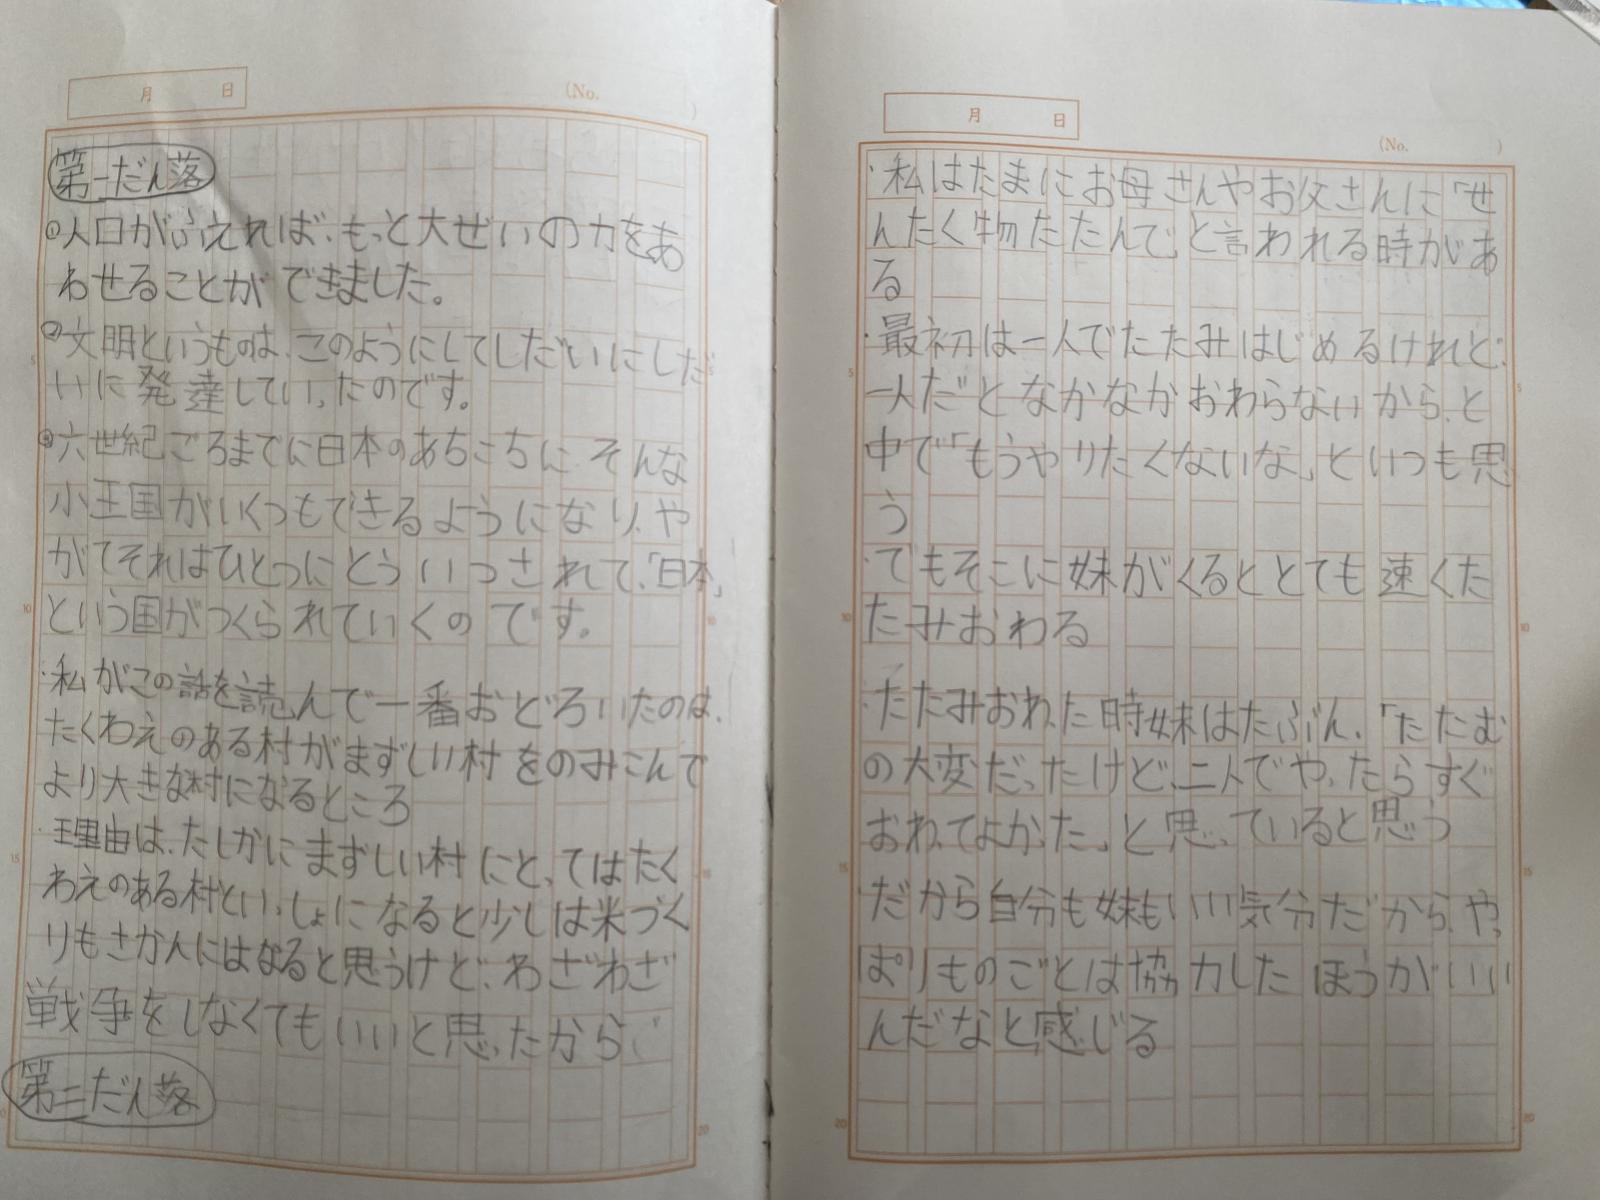 月 日
(No. )
第一だん落
①人口がふえれば、もっと大ぜいの力をあ
わせることができました。
②文明というものは、このようにしてしだいにしだ
いに発達していったのです。
③六世紀ごろまでに日本のあちこちに、そんな
小王国がいくつもできるようになり、や
がてそれはひとつにとういつされて、「日本」
という国がつくられていくのです。
・私がこの話を読んで一番おどろいたのは、
たくわえのある村がまずしい村をのみこんで
より大きな村になるところ
・理由は、たしかにまずしい村にとってはたく
わえのある村といっしょになると少しは米づく
りもさかんにはなると思うけど、わざわざ
戦争をしなくてもいいと思ったから
第二だん落
月 日
(No. )
・私はたまにお母さんやお父さんに「せ
んたく物たたんで」と言われる時があ
る
・最初は一人でたたみはじめるけれど、
一人だとなかなかおわらないから、と
中で「もうやりたくないな」といつも思
う
・でもそこに妹がくるととても速くた
たみおわる
・たたみおわった時妹はたぶん、「たたむ
の大変だったけど、二人でやったらすぐ
おわってよかった」と思っていると思う
だから自分も妹もいい気分だから、やっ
ぱりものごとは協力したほうがいい
んだなと感じる
5
10
15
20
5
10
15
20